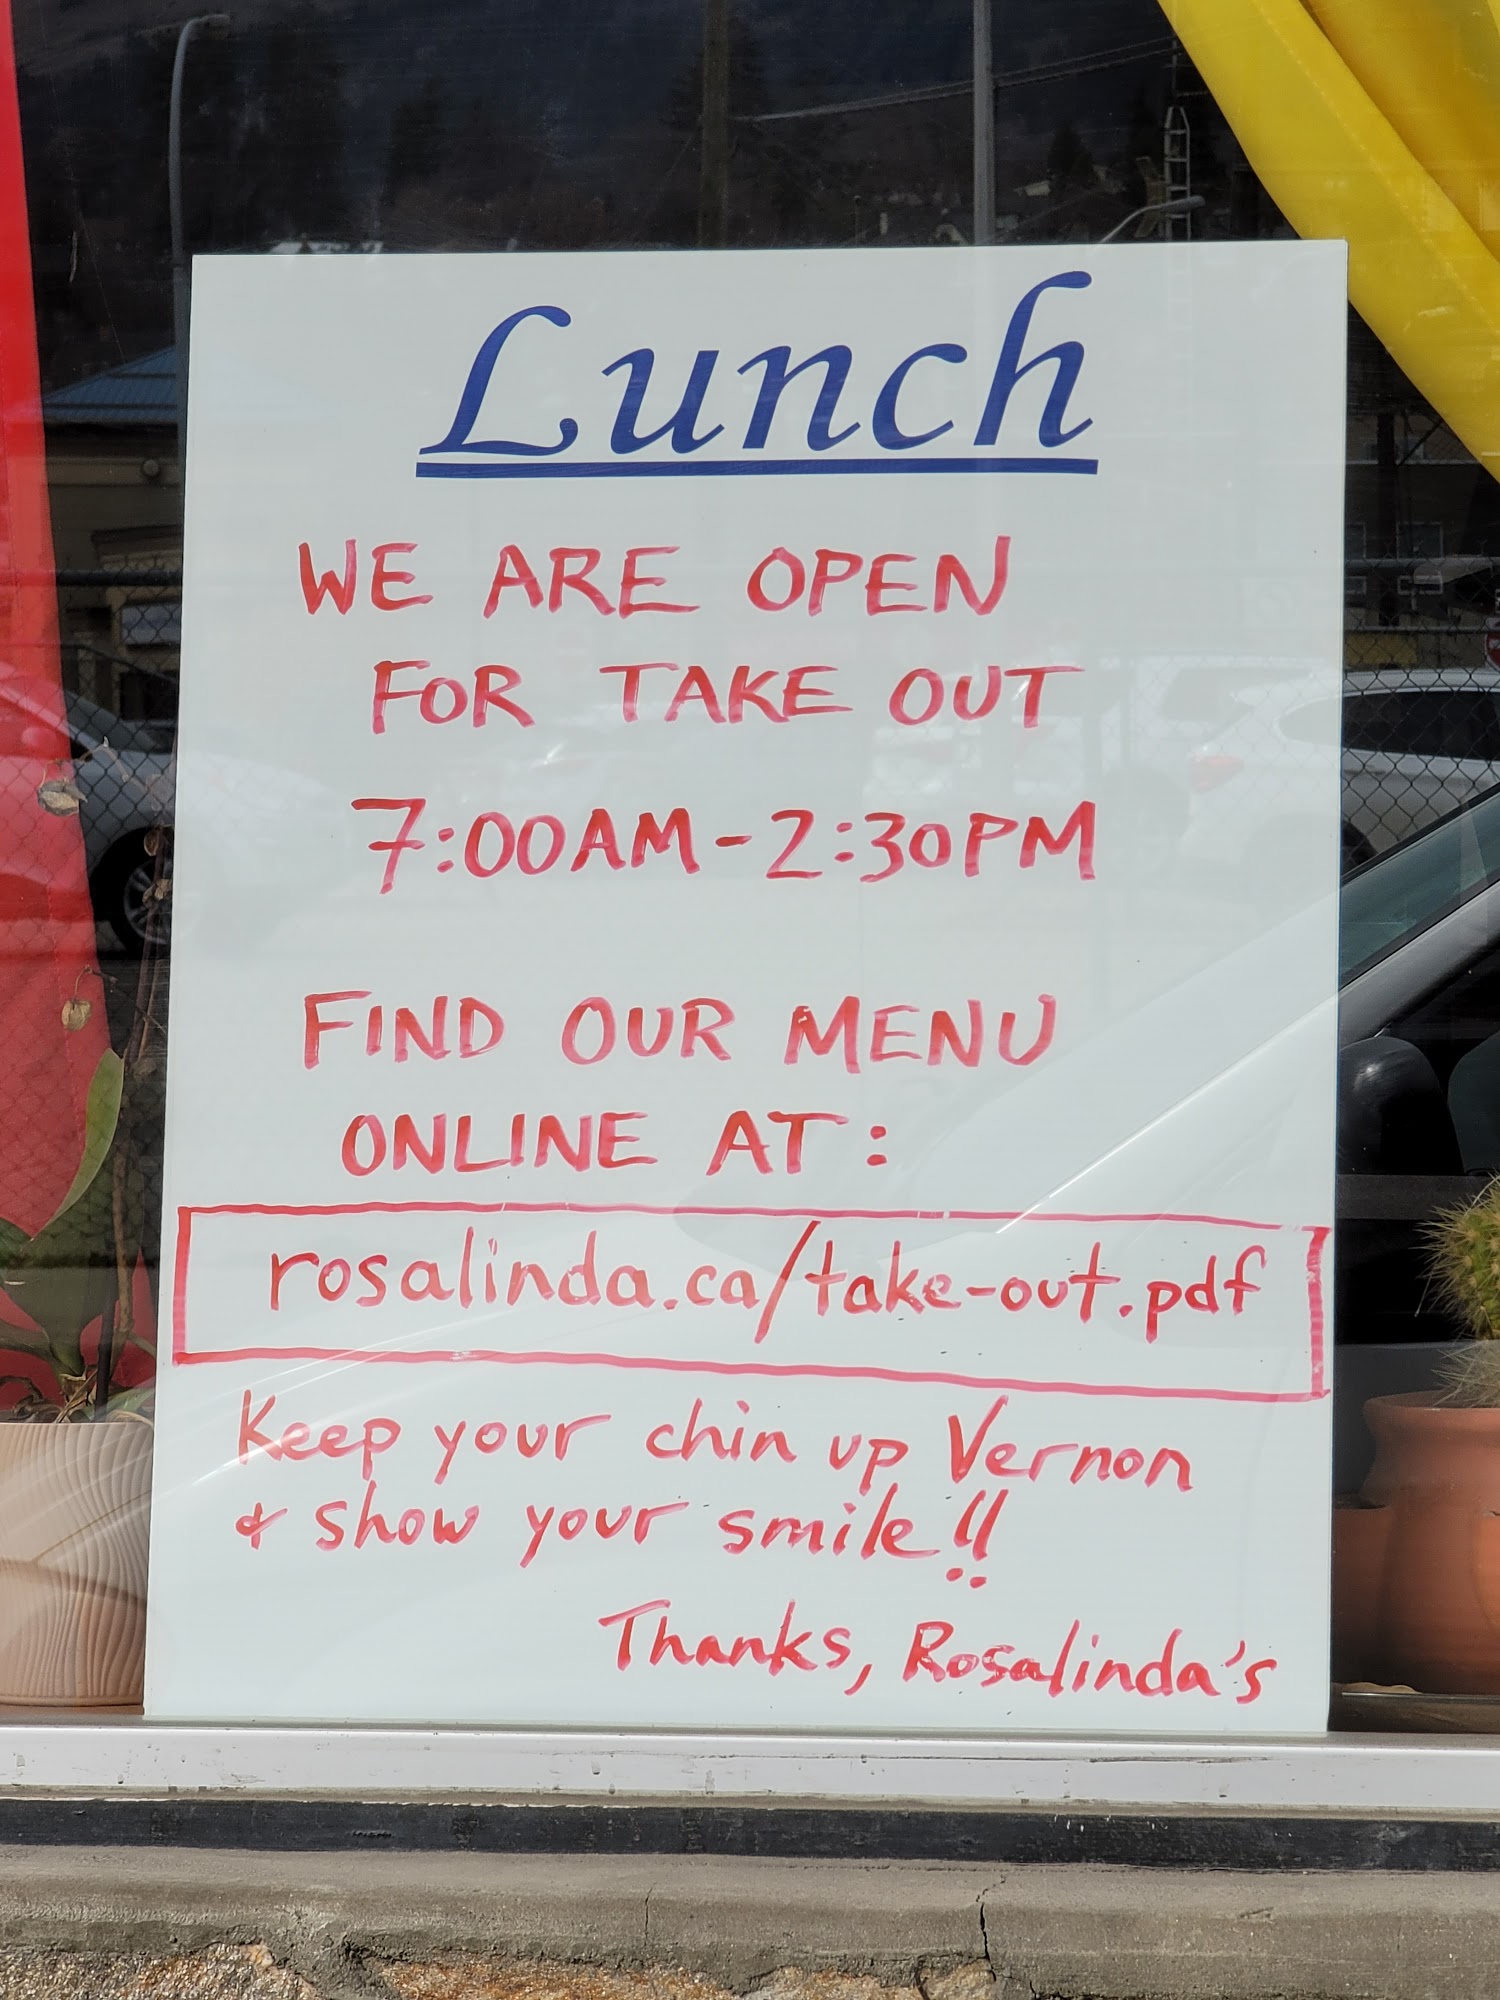 Lunch
WE ARE OPEN
FOR TAKE OUT
7:00AM-2:30PM
FIND OUR MENU
ONLINE AT:
rosalinda.ca/take-out.pdf
Keep your chin up Vernon
& show your smile!!
Thanks, Rosalinda's